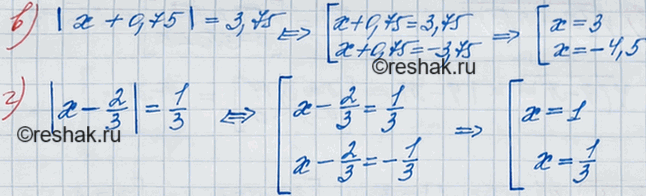 в) |x+0,75|=3,75 ⇔ [x+0,75=3,75 x+0,75=-3,75 ⇒ [x=3 x=-4,5
©reshak.ru
г) |x-2/3|=1/3 ⇔ [x-2/3=1/3 x-2/3=-1/3 ⇒ [x=1 x=1/3
©reshak.ru
©reshak.ru